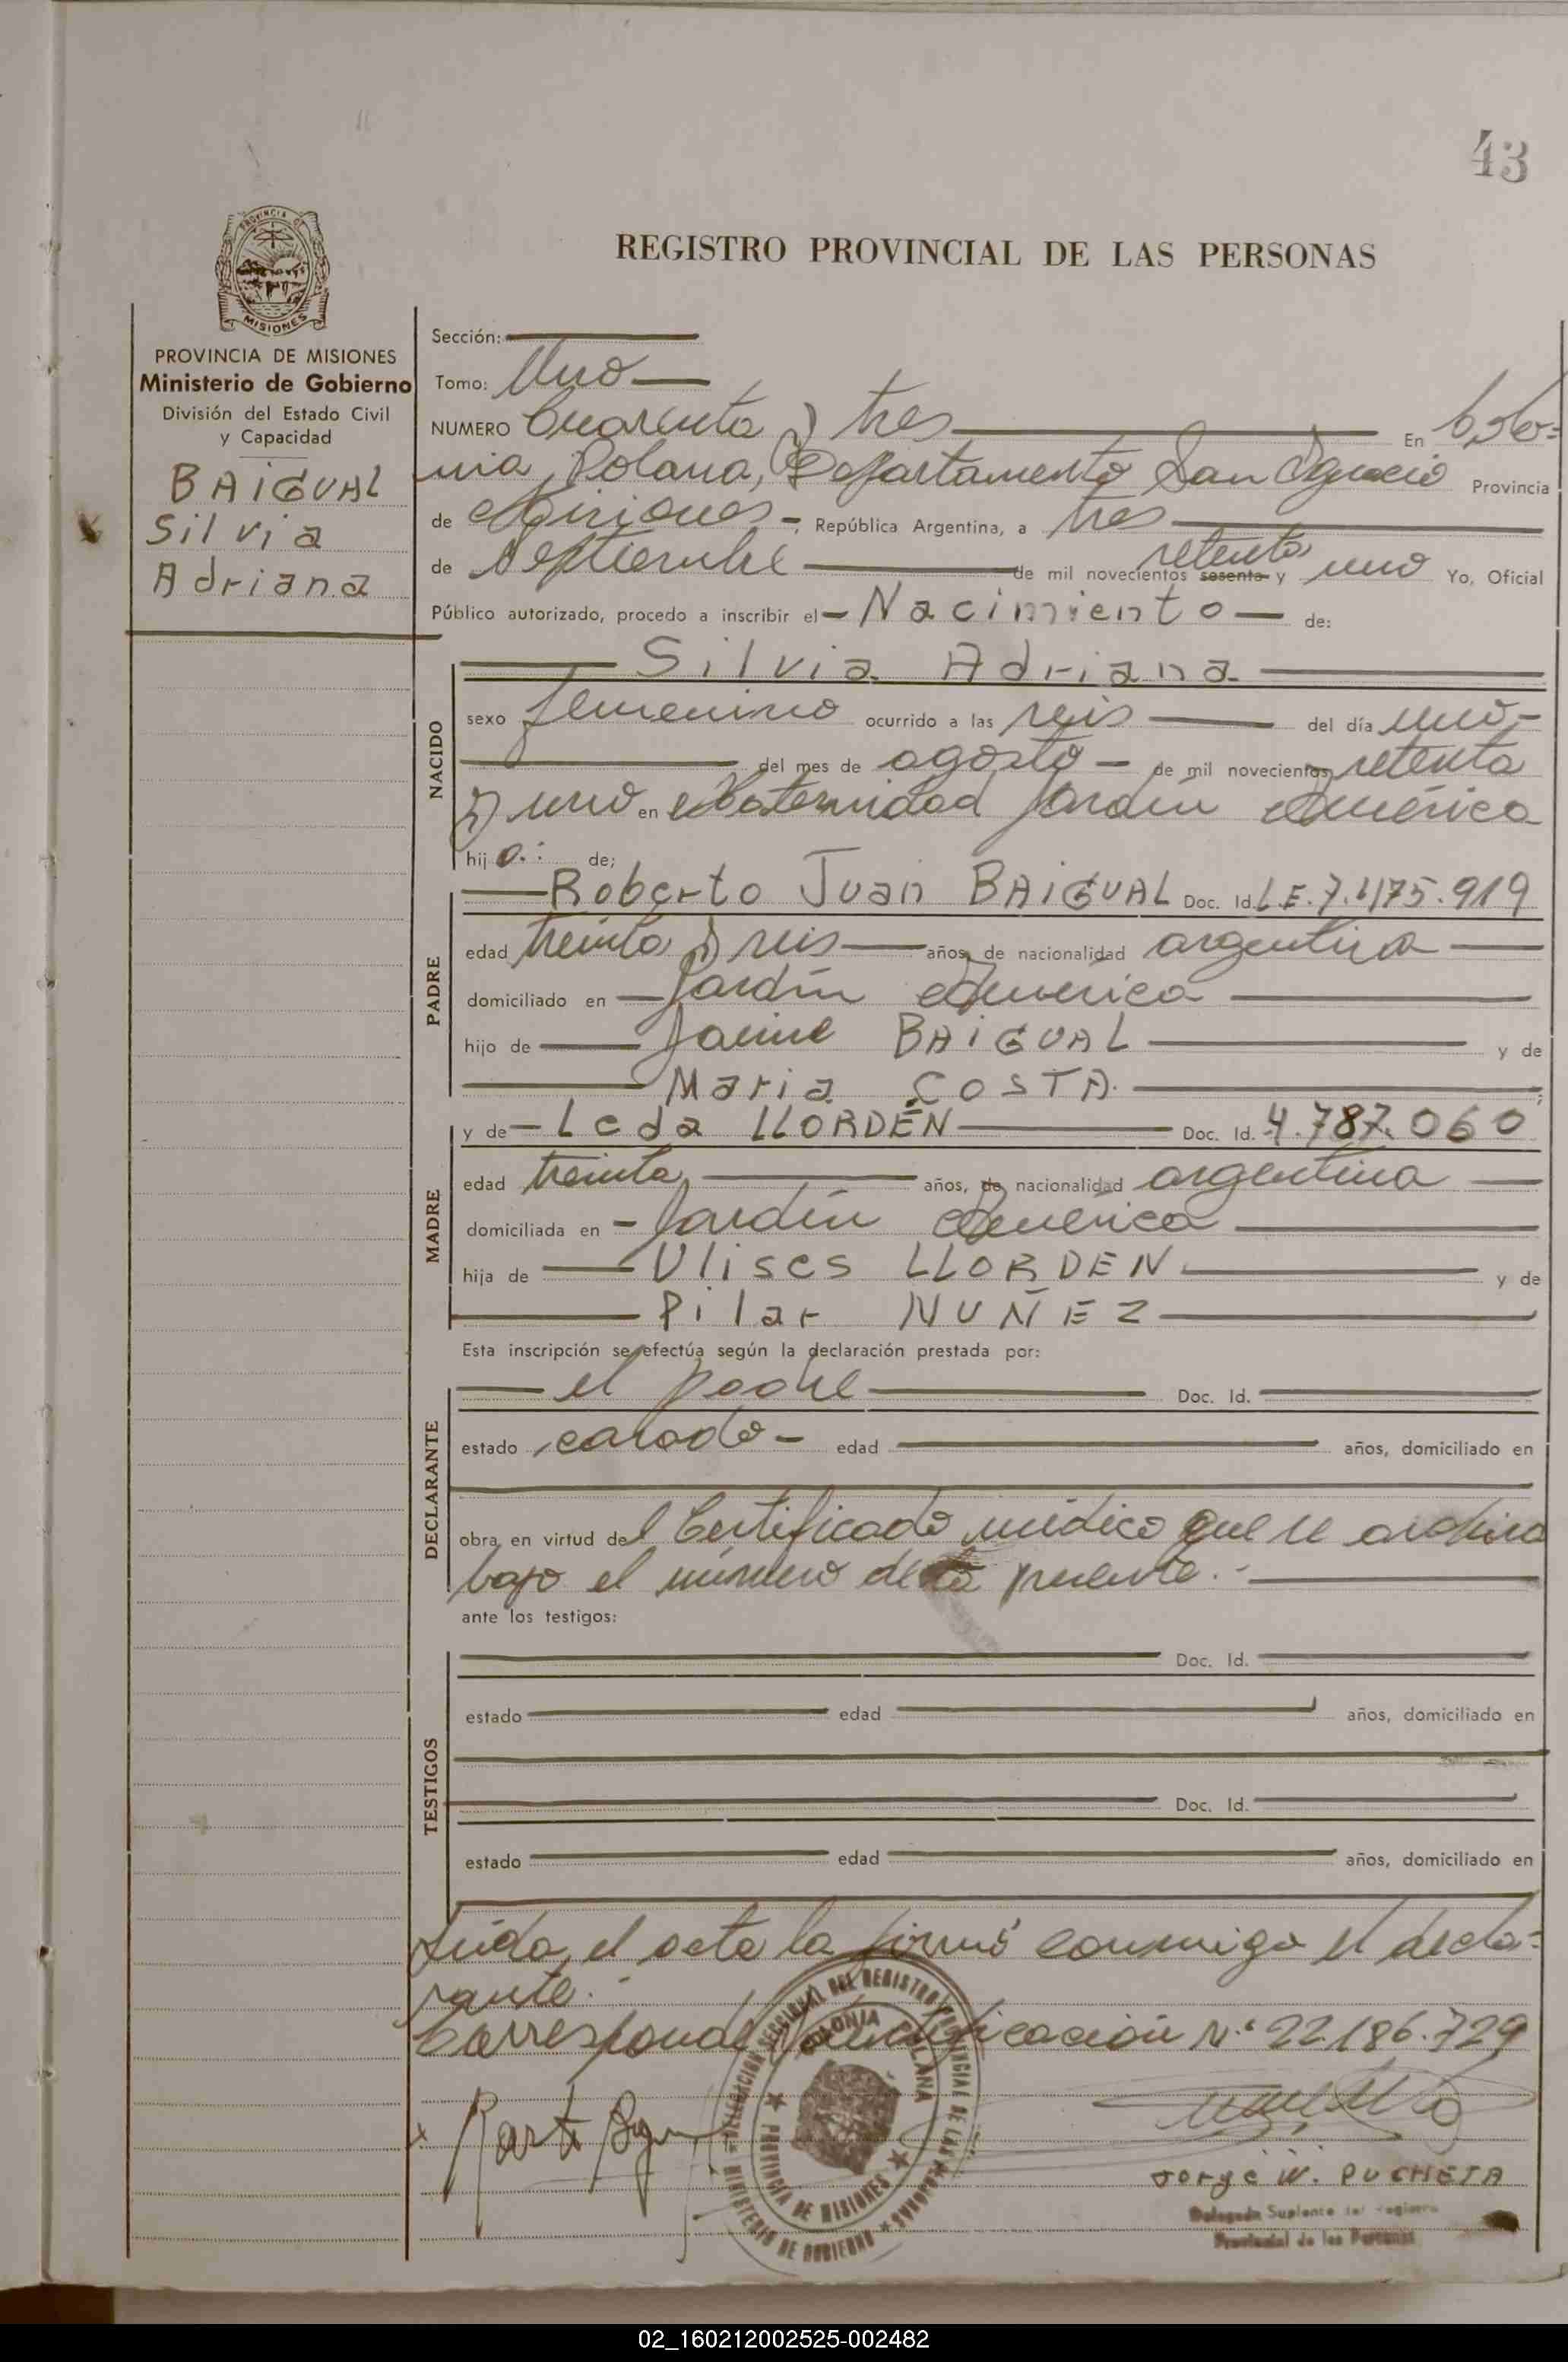 43
PROVINCIA DE
MISIONES
REGISTRO PROVINCIAL DE LAS PERSONAS
PROVINCIA DE MISIONES
Ministerio de Gobierno
División del Estado Civil
y Capacidad
BAIGUAL
Silvia
Adriana
Sección:
Tomo: Uno
NUMERO Cuarenta y tres En Colo=
nia Polana, Departamento San Ignacio Provincia
de Misiones - República Argentina, a tres
de Septiembre de mil novecientos sesenta setenta y uno Yo, Oficial
Público autorizado, procedo a inscribir el - Nacimiento - de:
NACIDO
Silvia Adriana
sexo femenino ocurrido a las seis del día uno -
del mes de agosto - de mil novecientos setenta
y uno en Maternidad Jardín América
hija.: de;
PADRE
Roberto Juan BAIGUAL Doc. Id. L.E. 7.475.919
edad treinta y seis años, de nacionalidad argentina
domiciliado en - Jardín América
hijo de Jaime BAIGUAL y de
Maria COSTA.
MADRE
y de - Leda LLORDÉN Doc. Id. 4.787.060
edad treinta años, de nacionalidad argentina
domiciliada en - Jardín América
hija de Ulises LLORDEN y de
Pilar NUÑEZ
Esta inscripción se efectúa según la declaración prestada por:
DECLARANTE
el padre Doc. Id.
estado casado - edad años, domiciliado en
obra en virtud del Certificado médico que se archiva
bajo el número de la presente.-
ante los testigos:
TESTIGOS
Doc. Id.
estado edad años, domiciliado en
Doc. Id.
estado edad años, domiciliado en
Leída el acta la firmó conmigo el decla=
rante.-
Corresponde Identificación N.º 22.186.729
DELEGACION SECCIONAL DEL REGISTRO PROVINCIAL DE LAS PERSONAS
MINISTERIO DE GOBIERNO
COLONIA POLANA
PROVINCIA DE MISIONES
Jorge W. PUCHETA
Delegado Suplente del Registro
Provincial de las Personas
02_160212002525-002482